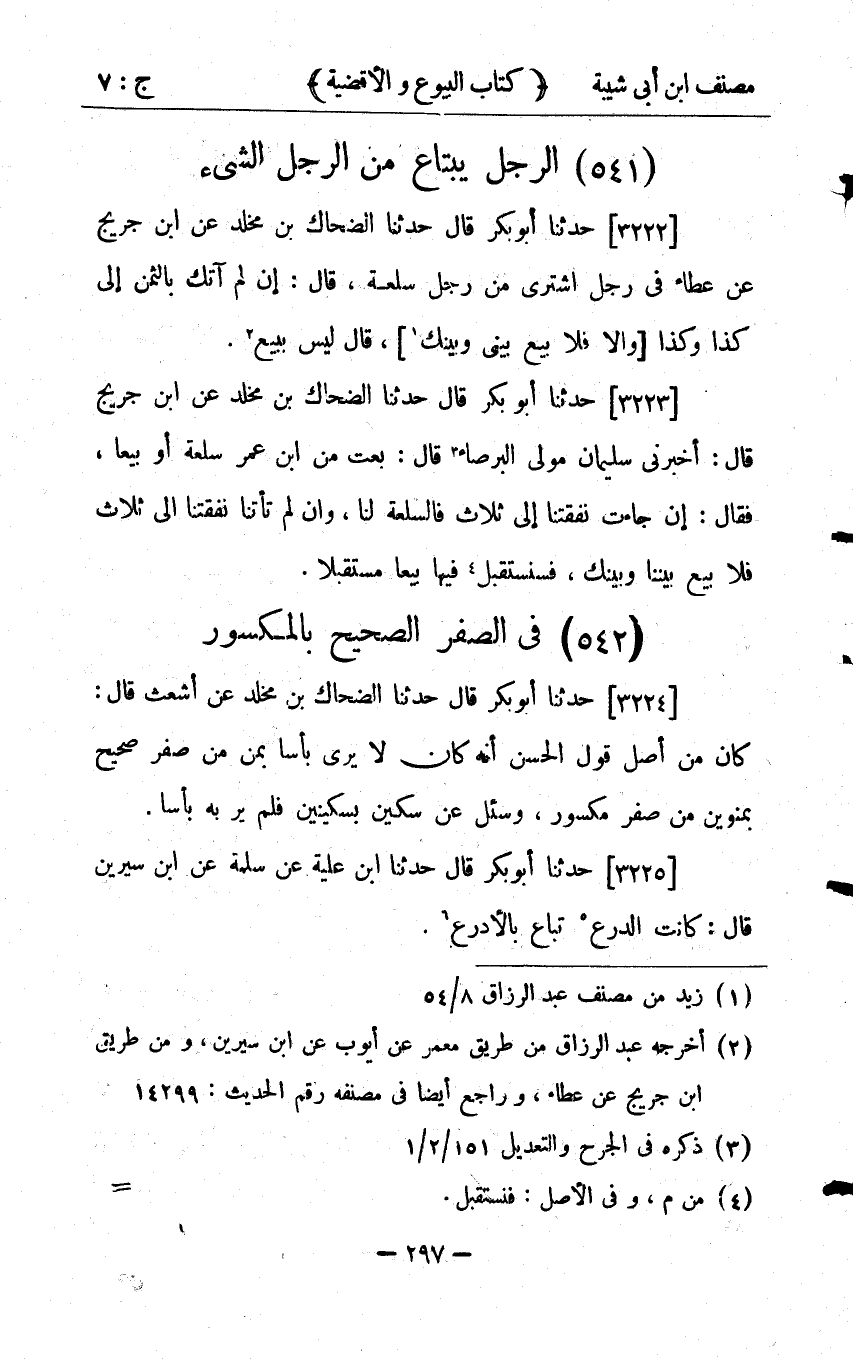 مصنف ابن أبى شيبة ﴿ كتاب البيوع و الأقضية ﴾ ج : ٧
(٥٤١) الرجل يبتاع من الرجل الشىء
[٣٢٢٢] حدثنا أبوبكر قال حدثنا الضحاك بن مخلد عن ابن جريج
عن عطاء فى رجل اشترى من رجل سلعة ، قال : إن لم آتك بالثمن إلى
كذا وكذا [والا فلا بيع بينى وبينك١] ، قال ليس ببيع٢ .
[٣٢٢٣] حدثنا أبو بكر قال حدثنا الضحاك بن مخلد عن ابن جريج
قال : أخبرنى سليمان مولى البرصاء٣ قال : بعت من ابن عمر سلعة أو بيعا ،
فقال : إن جاءت نفقتنا إلى ثلاث فالسلعة لنا ، وان لم تأتنا نفقتنا الى ثلاث
فلا بيع بيننا وبينك ، فسنستقبل٤ فيها بيعا مستقبلا .
(٥٤٢) فى الصفر الصحيح بالمكسور
[٣٢٢٤] حدثنا أبوبكر قال حدثنا الضحاك بن مخلد عن أشعث قال :
كان من أصل قول الحسن أنه كان لا يرى بأسا بمن من صفر صحيح
بمنوين من صفر مكسور ، وسئل عن سكين بسكينين فلم ير به بأسا .
[٣٢٢٥] حدثنا أبوبكر قال حدثنا ابن علية عن سلمة عن ابن سيرين
قال : كانت الدرع٥ تباع بالأدرع٦ .
(١) زيد من مصنف عبد الرزاق ٥٤/٨
(٢) أخرجه عبد الرزاق من طريق معمر عن أيوب عن ابن سيرين ، و من طريق
ابن جريج عن عطاء ، و راجع أيضا فى مصنفه رقم الحديث : ١٤٢٩٩
(٣) ذكره فى الجرح والتعديل ١/٢/١٥١
(٤) من م ، و فى الأصل : فنستقبل .
=
— ٢٩٧ —